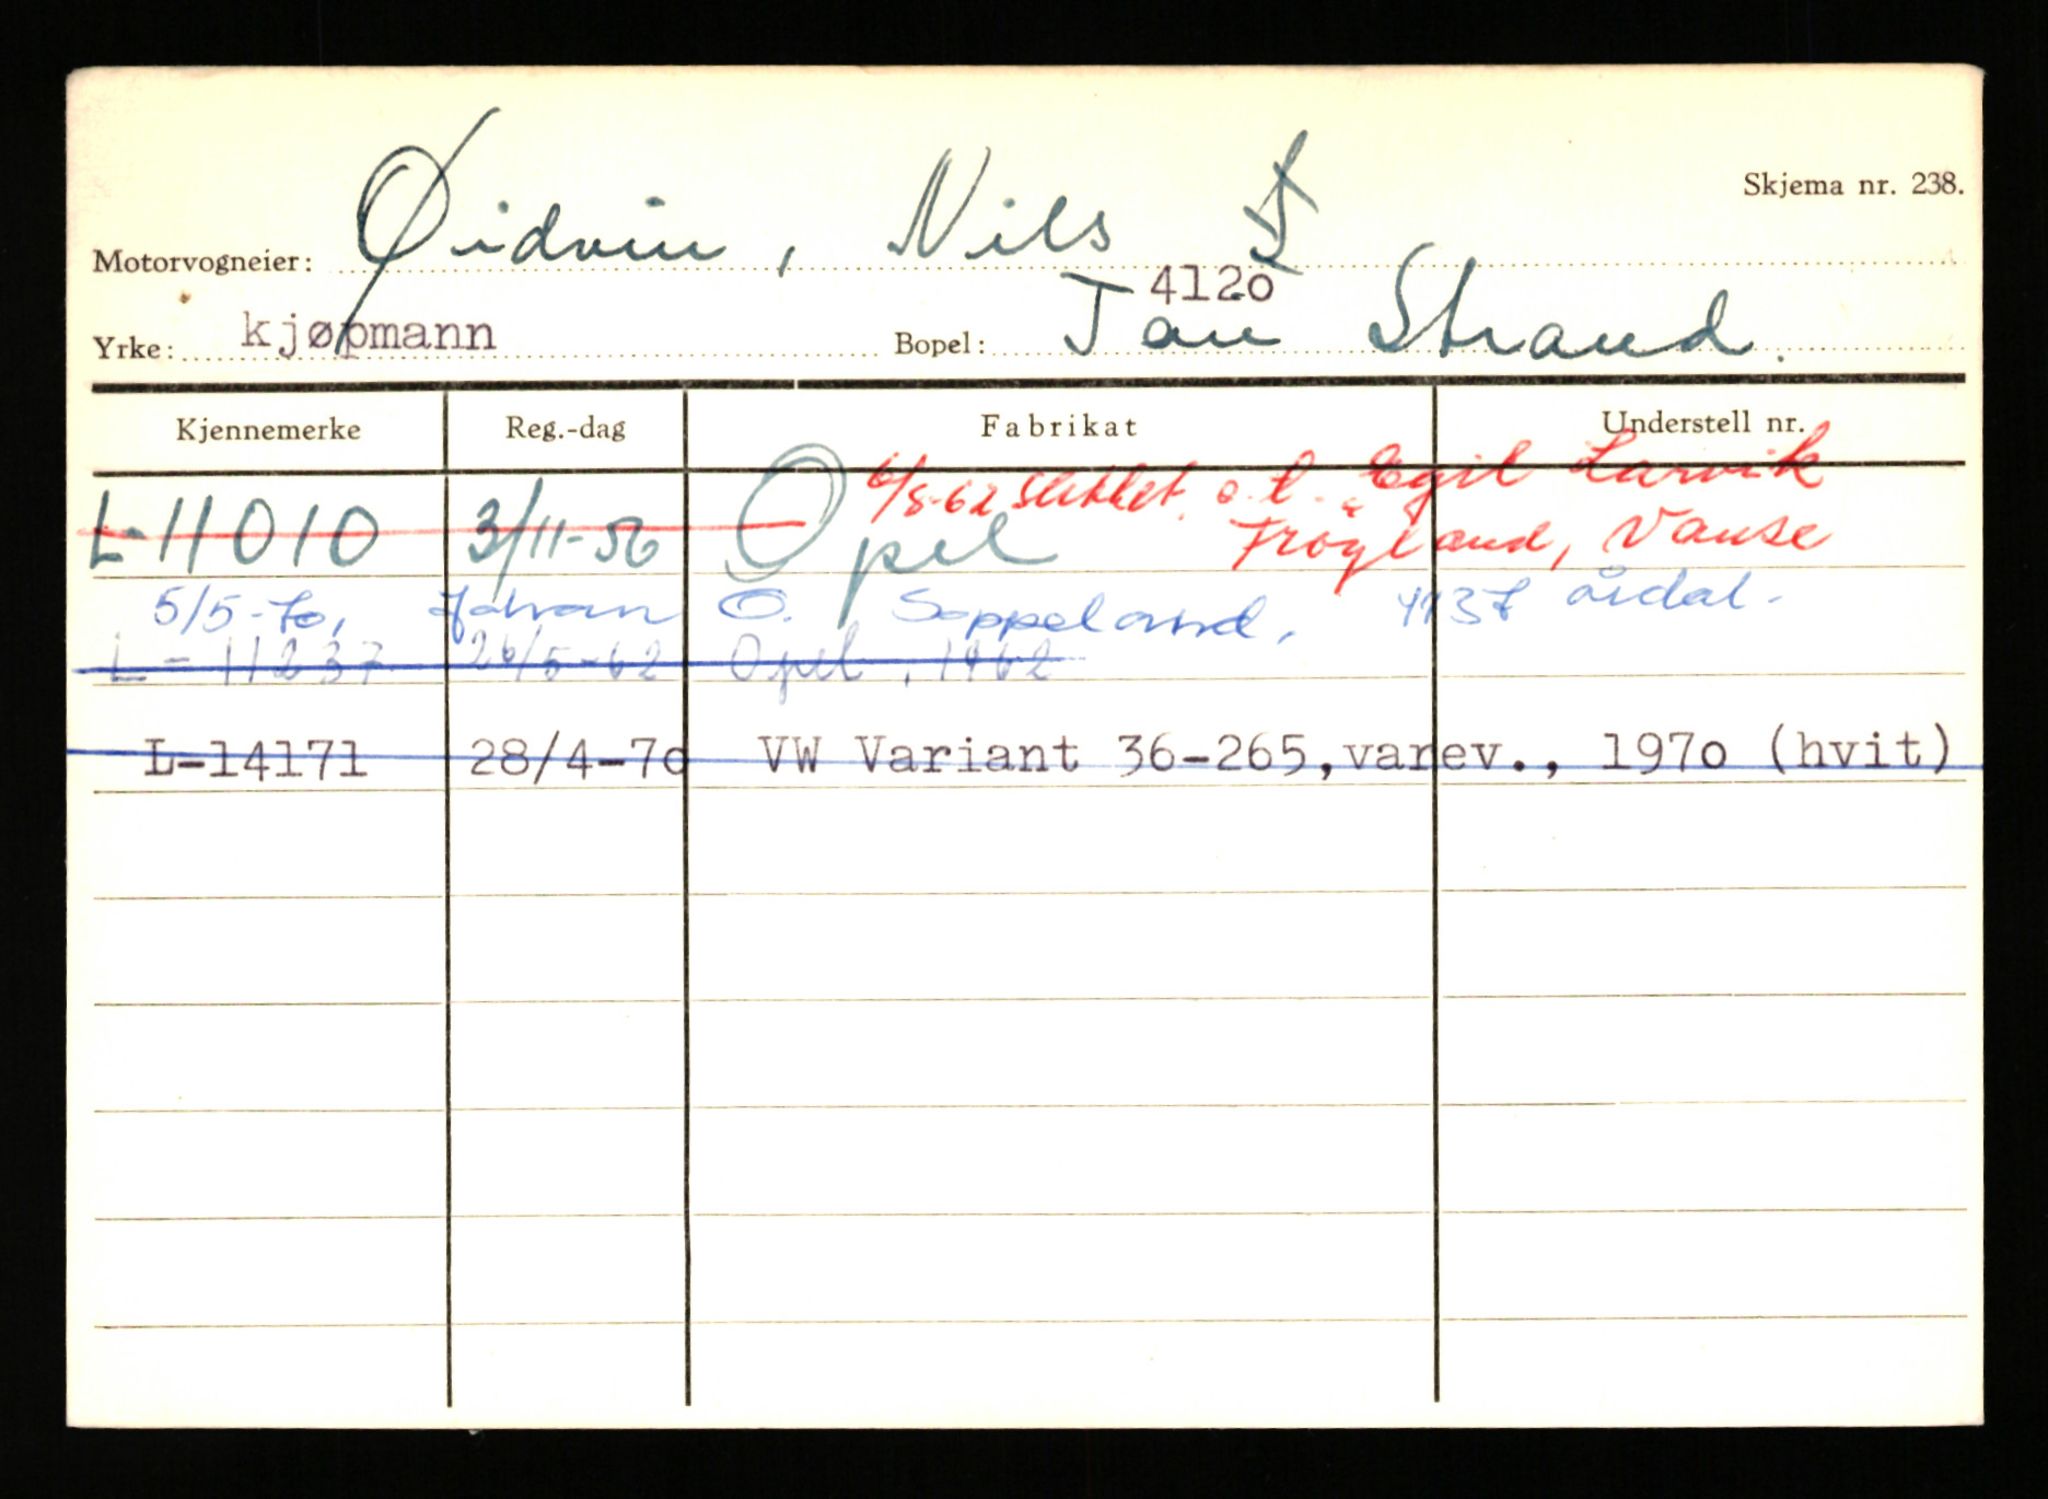 Skjema nr. 238.
Motorvogneier: Øidvin, Nils
4120
Yrke: kjøpmann Bopel: Tau Strand.
Kjennemerke Reg.-dag Fabrikat Understell nr.
6/8-62 slettet. o.t. Egil Larvik
L-11010 3/11-56 Opel Frøyland, Vanse
5/5-70, Johan O. Seppeland, 4137 årdal.
L-11237 26/5-62 Opel, 1962
L-14171 28/4-7o VW Variant 36-265,varev., 197o (hvit)